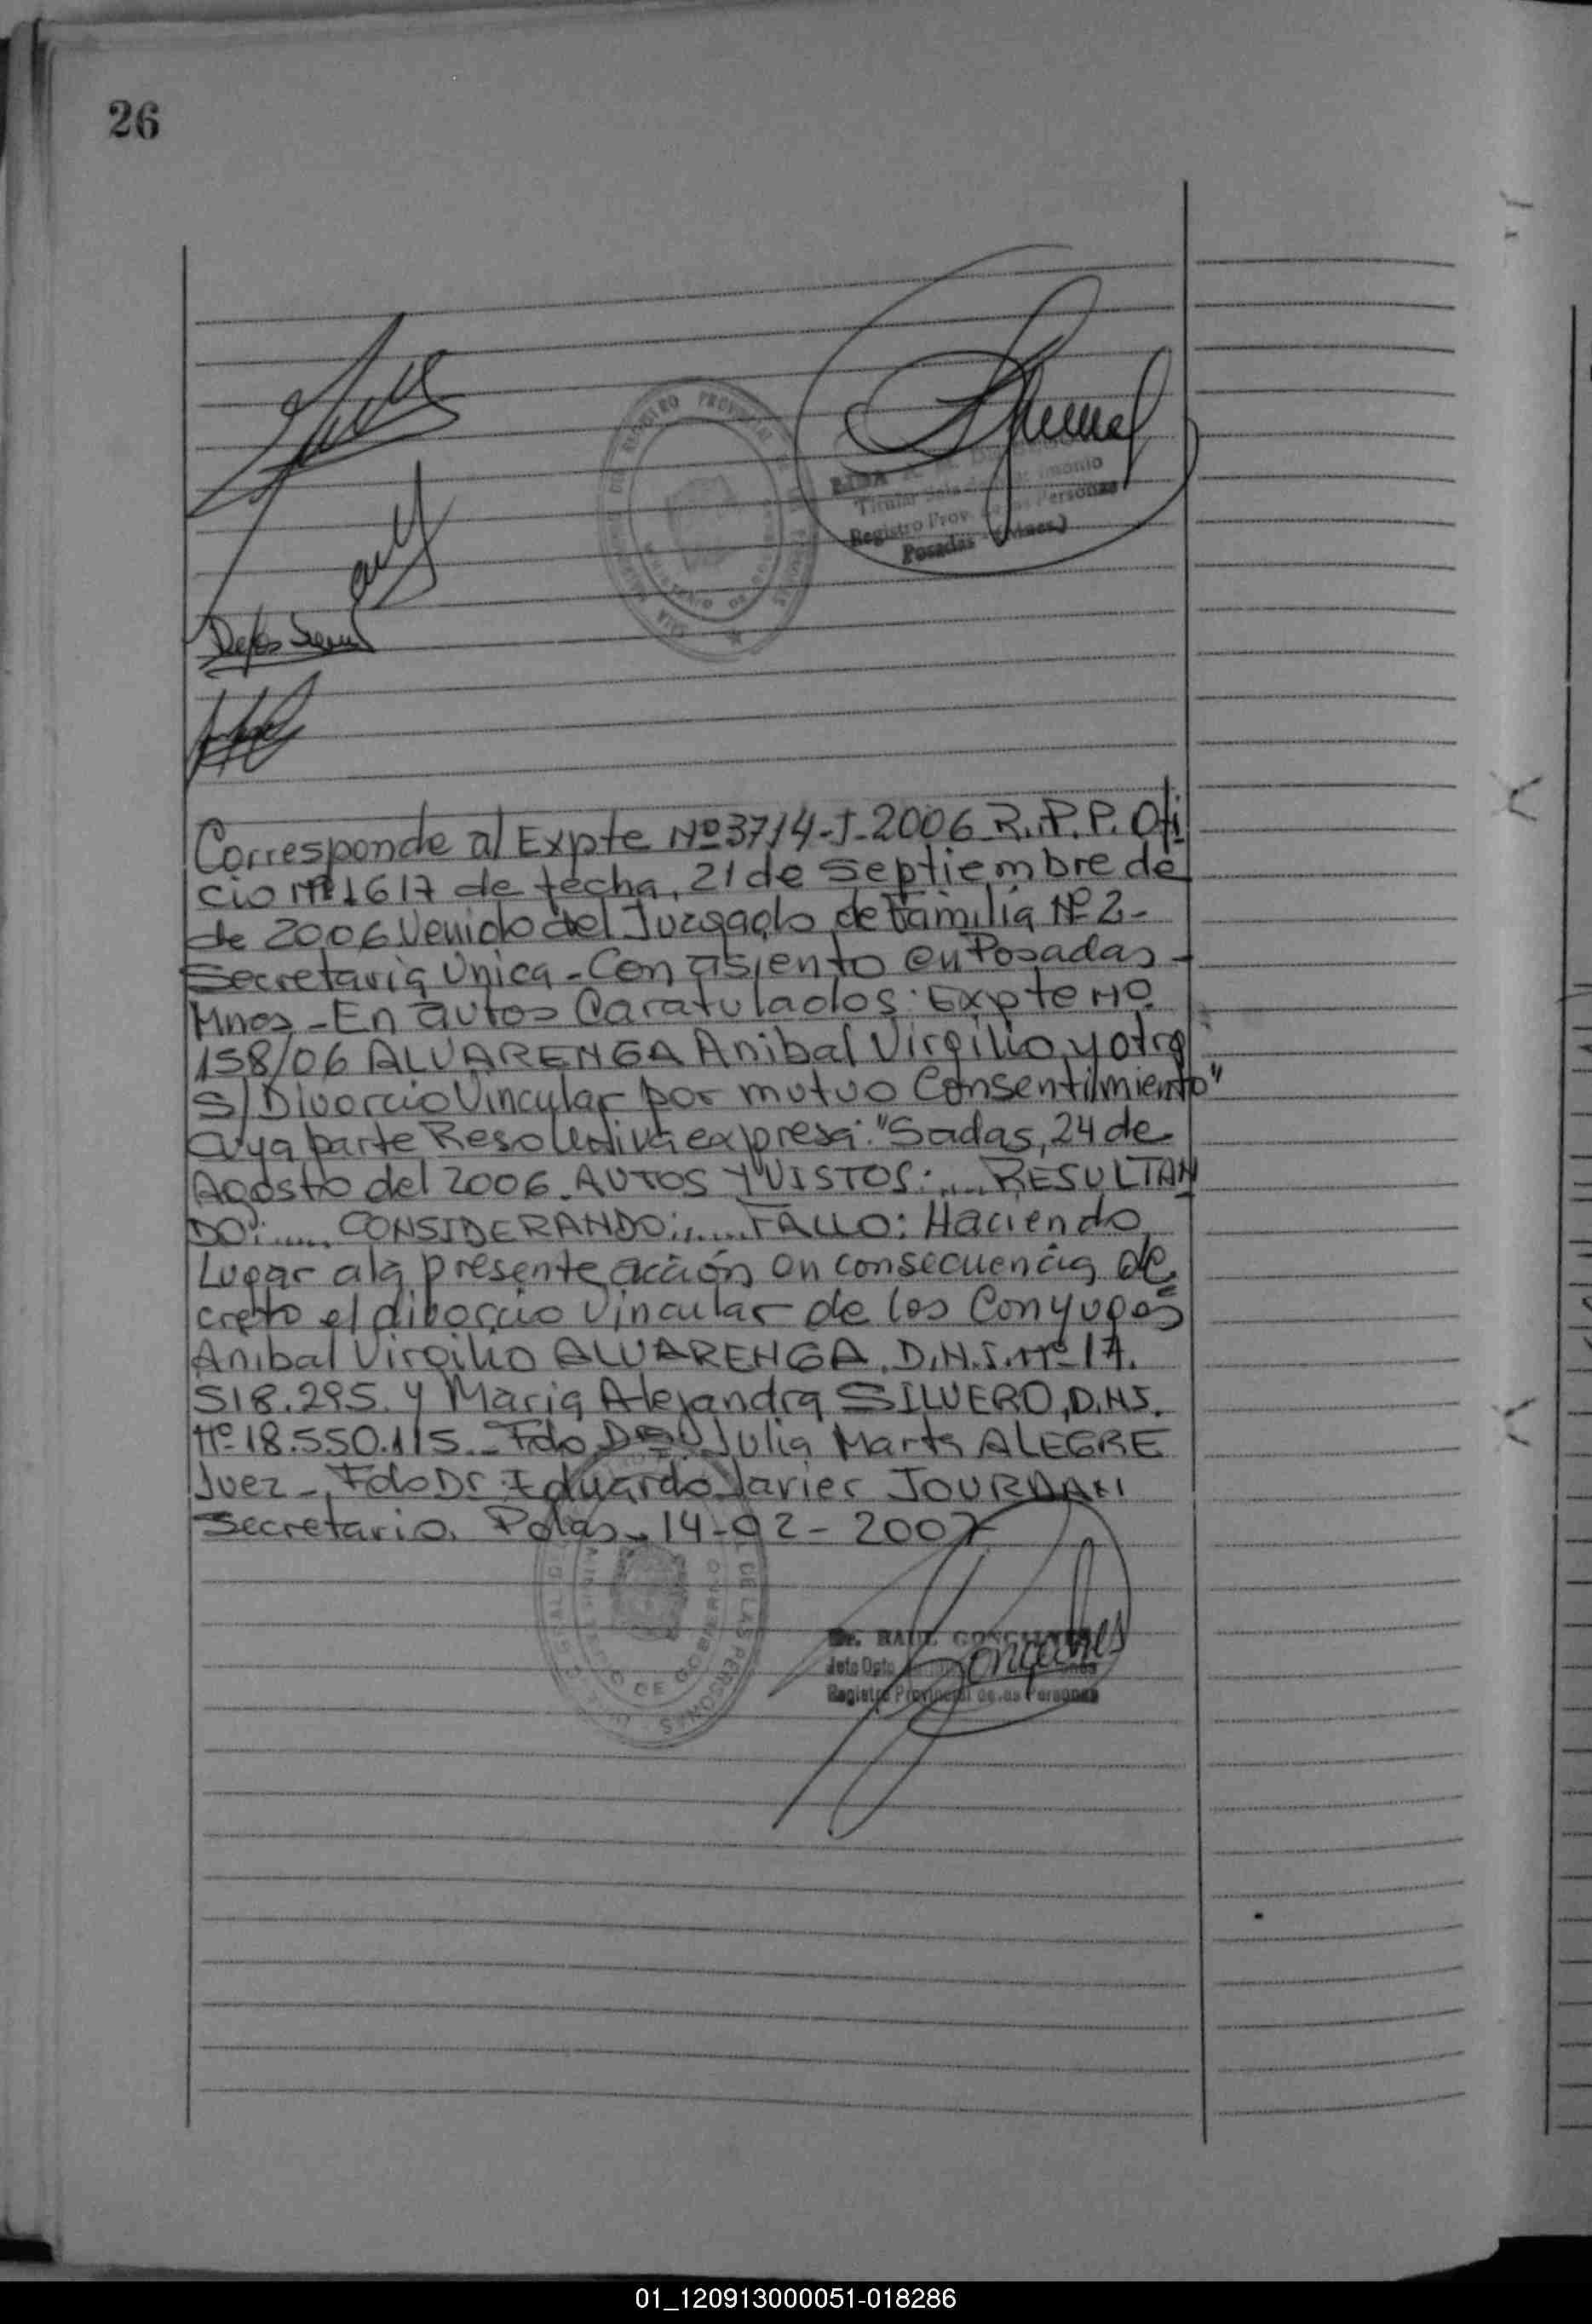 26
REGISTRO PROVINCIAL
Titular
Registro Prov. Personas
Posadas (Mnes.)
Corresponde al Expte Nº 3714-J-2006 R.P.P. Ofi
cio Nº 1617 de fecha, 21 de septiembre de
de 2006 Venido del Juzgado de Familia Nº 2-
Secretaria Unica - Con asiento en Posadas -
Mnes - En autos Caratulados: Expte Nº
158/06 ALVARENGA Anibal Virgilio y otra
S/ Divorcio Vincular por mutuo Consentimiento"
cuya parte Resolutiva expresa: "Sadas, 24 de
Agosto del 2006. AUTOS Y VISTOS:.... RESULTAN
DO:..... CONSIDERANDO:..... FALLO: Haciendo
Lugar a la presente acción en consecuencia de
creto el divorcio Vincular de los Conyuges
Anibal Virgilio ALVARENGA. D.N.I. Nº 17.
518.295. y Maria Alejandra SILVERO, D.N.I.
Nº 18.550.115. - Fdo Julia Marta ALEGRE
Juez - Fdo Dr. Eduardo Javier JOURDAN
Secretario. Pdas - 14-02-2007
DE LAS PERSONAS
DE GOBIERNO
Dr. RAUL
Jefe Dpto
Registro Provincial de las Personas
01_120913000051-018286